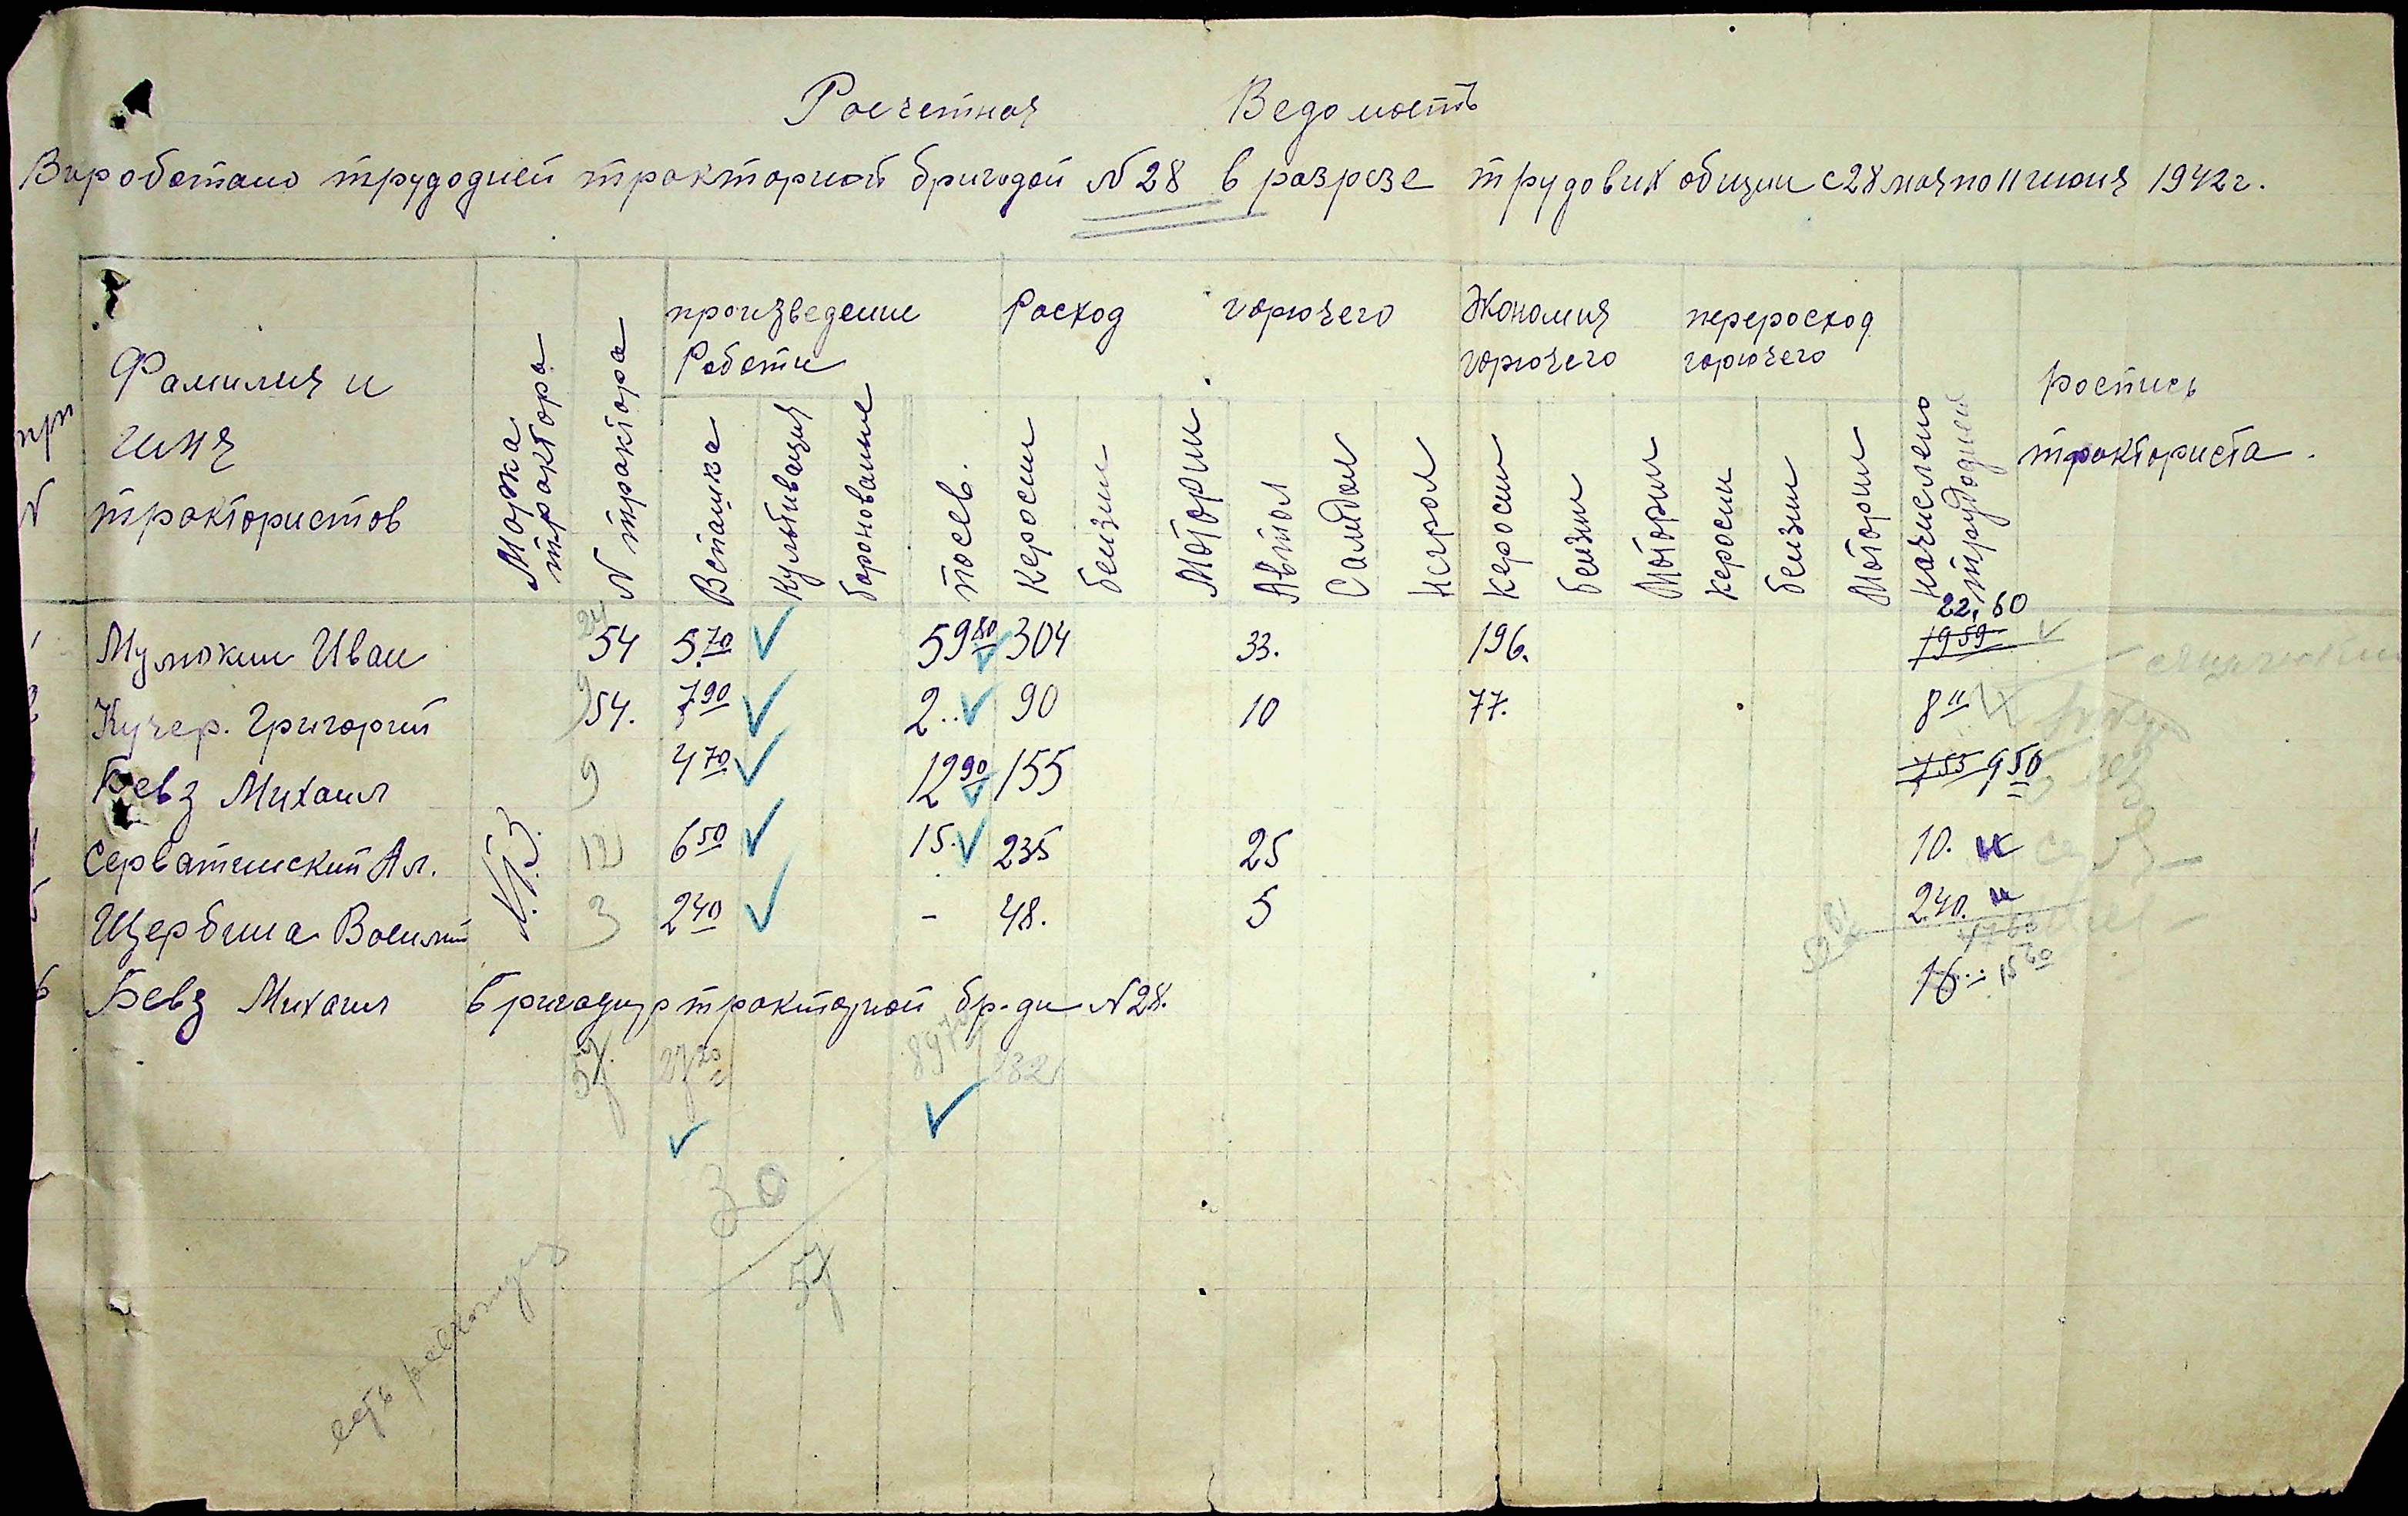 Росчетная Ведомость
Вироботано трудодней тракторной бригодой N 28 в розрезе трудових общин с 28 мая по 11 июня 1942 г.
прп
N
Фамилия и
имя
трактористов
Морка трактора
N трактора
произведени
Работи
Вспашка
Культивация
боронование
посев.
Росход горючего
Керосин
бензин
Моторин
Автол
Салидол
Негрол
Экономия
горючего
Керосин
бензин
Моторин
переросход
горючего
керосин
бензин
Моторин
Начислено трудодней
роспись
тракториста.
1 Мулюкин Иван 24 54 5.70 59 80 304 33. 196. 22,60 1959
2 Кучер. Григорий 9 54. 7 90 2.. 90 10 77. 8 "
Бевз Михаил 9 4 70 12 90 155 755 9 50
Серватинский Ал. 12 6 50 15. 235 25 10.
5 Щербина Восилий 3 2 40 - 48. 5 2.40.
ХТЗ.
6 Бевз Михаил бригадир тракторной бр-ди N 28. 16 15 60
57 27 20 89 70 832
30
57